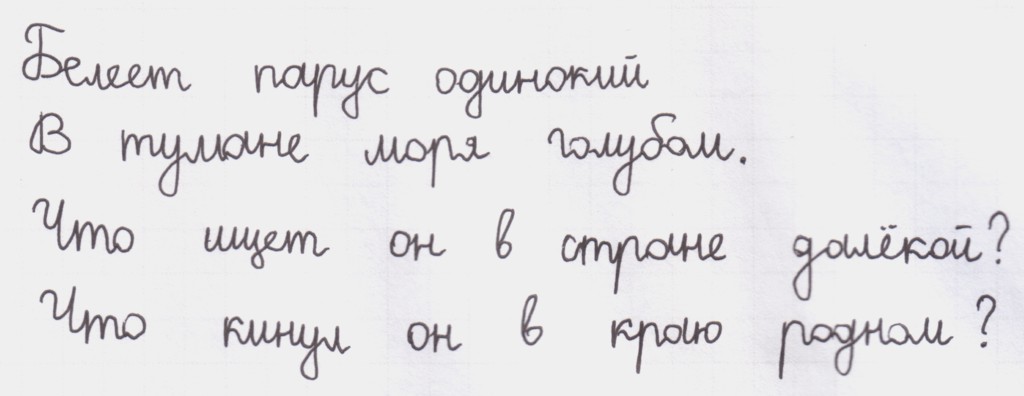 Белеет парус одинокий
В тумане моря голубом.
Что ищет он в стране далёкой?
Что кинул он в краю родном?